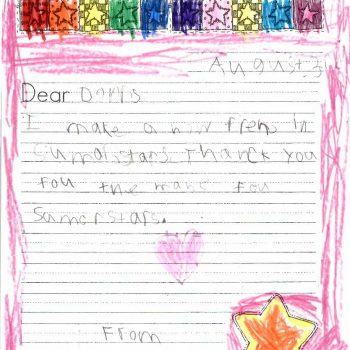 August 3
Dear Donis
I make a new frens in
Sumorstars. Thanck you
fou the mane fou
Sumorstars.
From